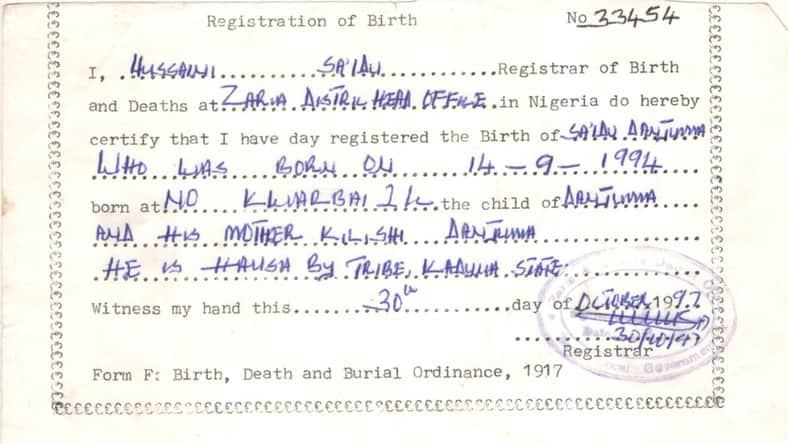 Registration of Birth No 33454
I, HUSSAINI SA'IDU Registrar of Birth
and Deaths at ZARIA DISTRIC HEAD OFFICE in Nigeria do hereby
certify that I have day registered the Birth of SA'IDU DANJUMA
WHO WAS BORN ON 14-9-1994
born at NO KWARBAI the child of DANJUMA
AND HIS MOTHER KILISHI DANJUMA
HE IS HAUSA BY TRIBE, KADUNA STATE.
Witness my hand this 30th day of OCTOBER 1997
30/10/97
Registrar
Form F: Birth, Death and Burial Ordinance, 1917